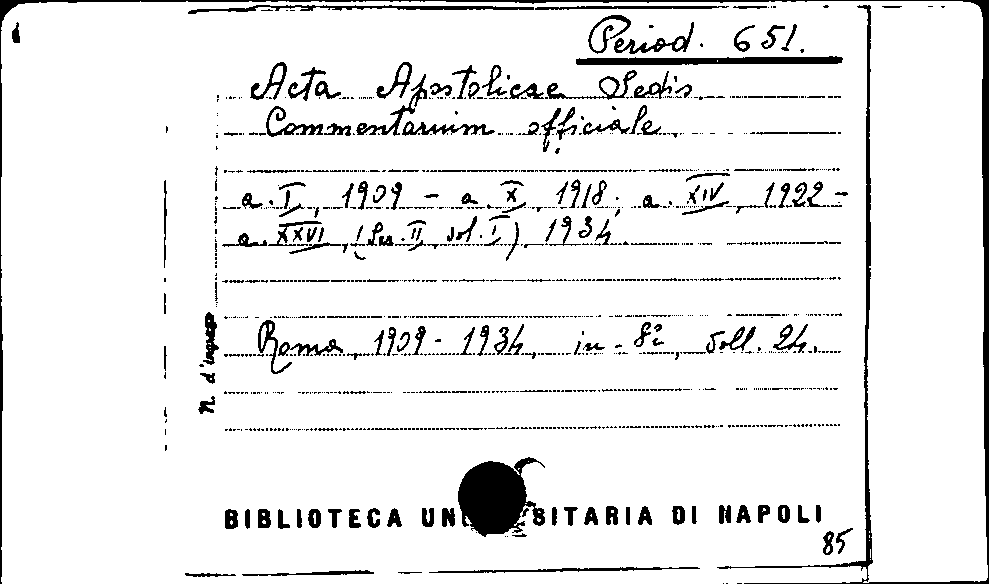 Period. 651.
Acta Apostolicae Sedis.
Commentarium officiale.
a. I, 1909 - a. X, 1918; a. XIV, 1922 -
a. XXVI, (Ser. II, vol. I), 1934.
Roma, 1909 - 1934, in-8º, voll. 24.
N. d'ingresso
BIBLIOTECA UN SITARIA DI NAPOLI
85